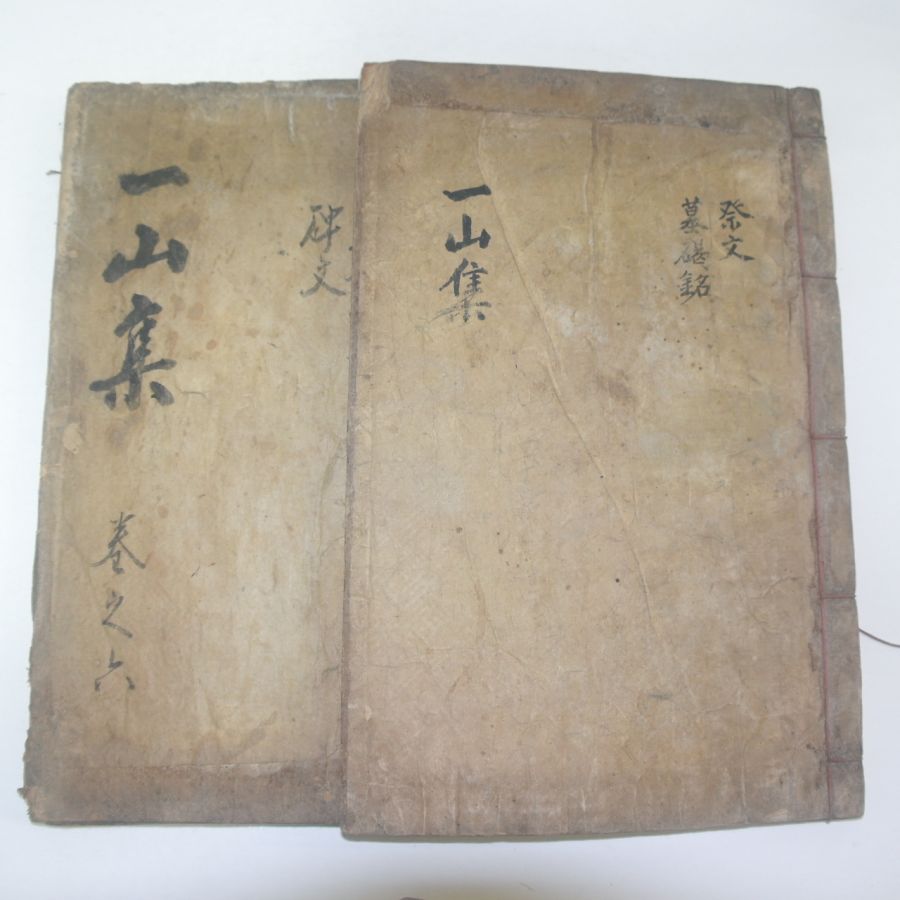 一山集
卷之六
碑文
一山集
祭文
墓碣銘